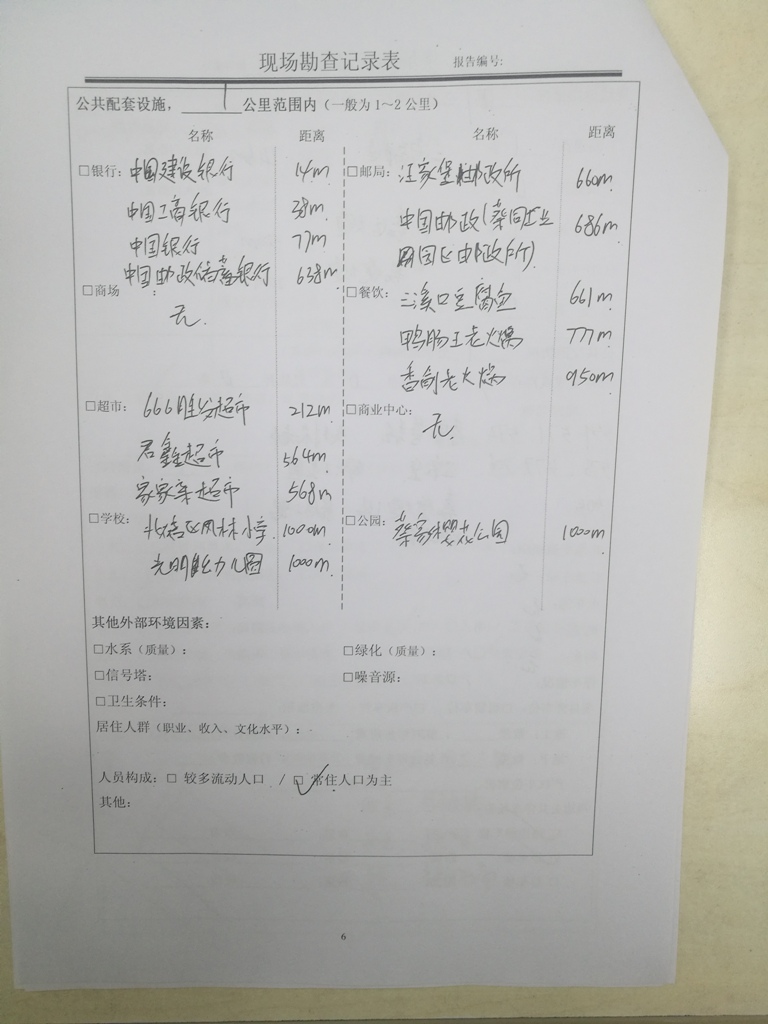 现场勘查记录表 报告编号:
公共配套设施，1公里范围内（一般为1～2公里）
名称 距离 名称 距离
□银行: 中国建设银行 14m □邮局: 汪家堡邮政所 660m
中国工商银行 38m 中国邮政(蔡同工业 686m
中国银行 77m 园区邮政所)
中国邮政储蓄银行 638m
□商场 : □餐饮: 三溪口豆腐鱼 661m
无. 鸭肠王老火锅 777m
老火锅 950m
□超市: 666胜分超市 212m □商业中心:
君鑫超市 564m 无.
家家亲超市 568m
□学校: 北碚区凤林小学 1000m □公园: 蔡家樱花公园 1000m
光明幼儿园 1000m
其他外部环境因素:
□水系（质量）: □绿化（质量）:
□信号塔: □噪音源:
□卫生条件:
居住人群（职业、收入、文化水平）:
人员构成: □ 较多流动人口 / ☑ 常住人口为主
其他:
6